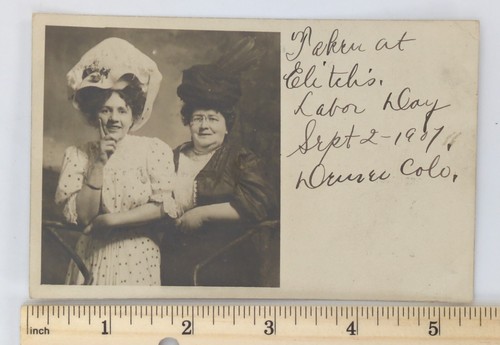 Taken at
Elitch's.
Labor Day
Sept 2-1907.
Denver Colo.
inch 1 2 3 4 5